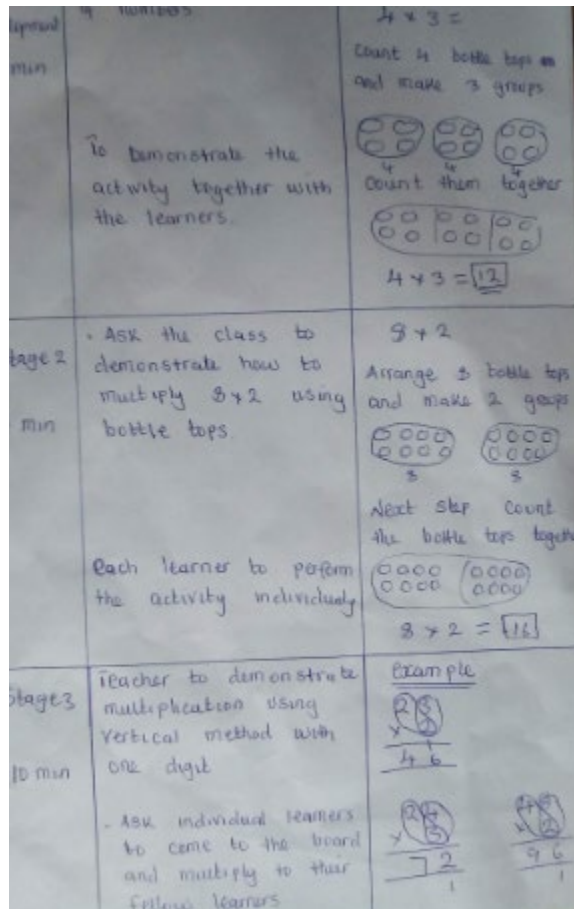 numbers
min
To Demonstrate the
activity together with
the learners.
4 x 3 =
Count 4 bottle tops
and make 3 groups
4 4 4
Count them together
4 x 3 = 12
tage 2
min
. Ask the class to
demonstrate how to
multiply 8x2 using
bottle tops.
Each learner to perform
the activity individualy
8 x 2
Arrange 8 bottle tops
and make 2 groups
8 8
Next step count
the bottle tops togeth
8 x 2 = 16
Stage3
10 min
Teacher to demonstrate
multiplication using
vertical method with
one digit
. Ask individual learners
to come to the board
and multiply to their
fellow learners
Example
23
x 2
46
24
x 3
72
1
48
x 2
96
1